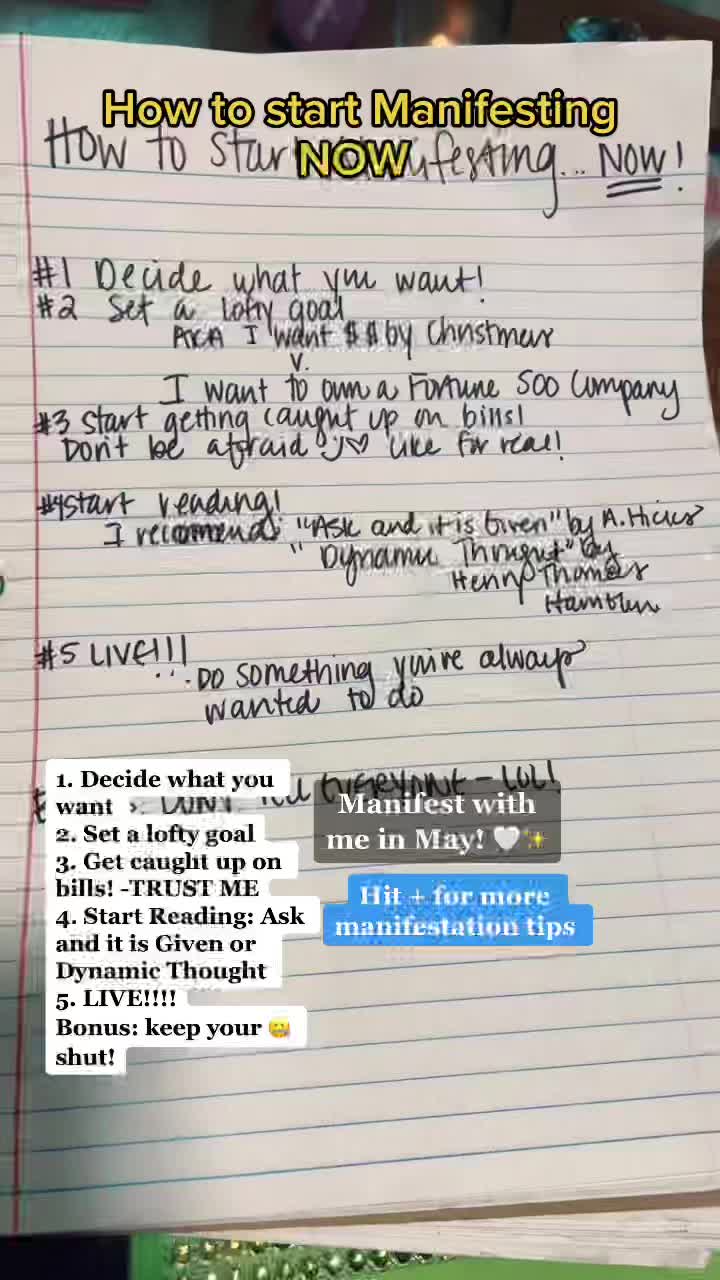 How to start Manifesting
NOW
How to Star ifesting... NOW!
#1 Decide what you want!
#2 Set a lofty goal
AKA I want $$ by Christmas
v.
I want to own a Fortune 500 Company
#3 Start getting caught up on bills!
Don't be afraid like for real!
#4 Start reading!
I recomend: "Ask and it is Given" by A. Hicks
"Dynamic Thought" by
Henry Thomas
Hamblin
#5 LIVE!!!
...Do something you've always
wanted to do
EVERYONE - LOL!
1. Decide what you
want
2. Set a lofty goal
3. Get caught up on
bills! -TRUST ME
4. Start Reading: Ask
and it is Given or
Dynamic Thought
5. LIVE!!!!
Bonus: keep your 🤐
shut!
Manifest with
me in May! 🤍✨
Hit + for more
manifestation tips